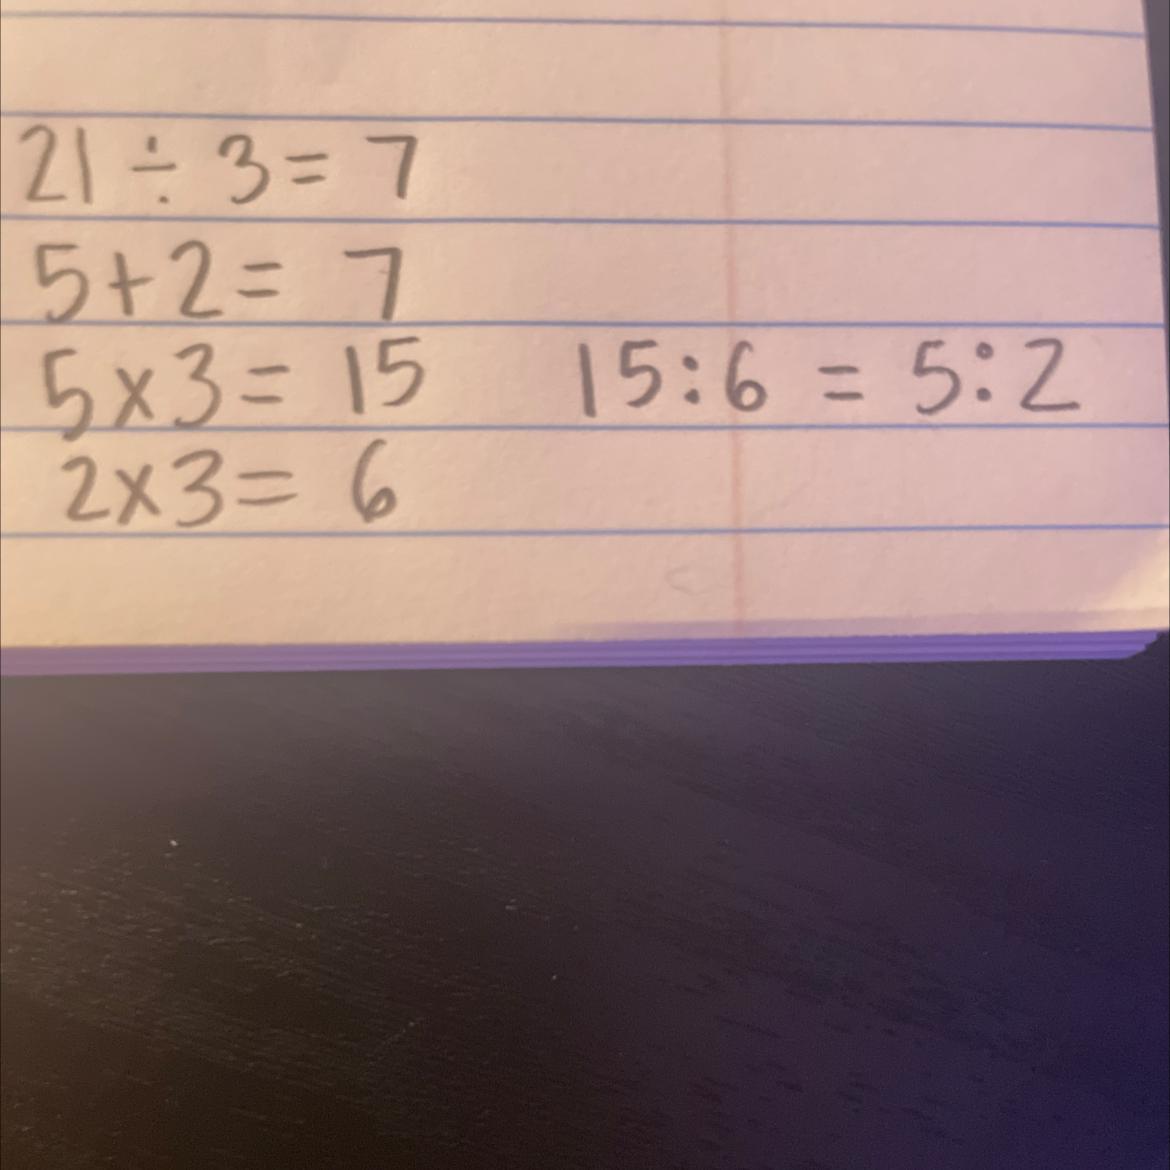 21 ÷ 3 = 7
5+2 = 7
5x3 = 15 15:6 = 5:2
2x3 = 6